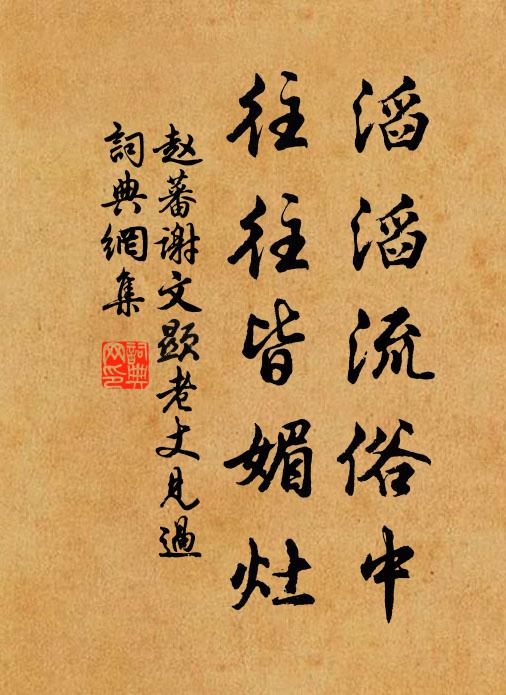 滔滔流俗中
往往皆媚灶
赵蕃谢文显老丈见過
詞典網集
詞典網印